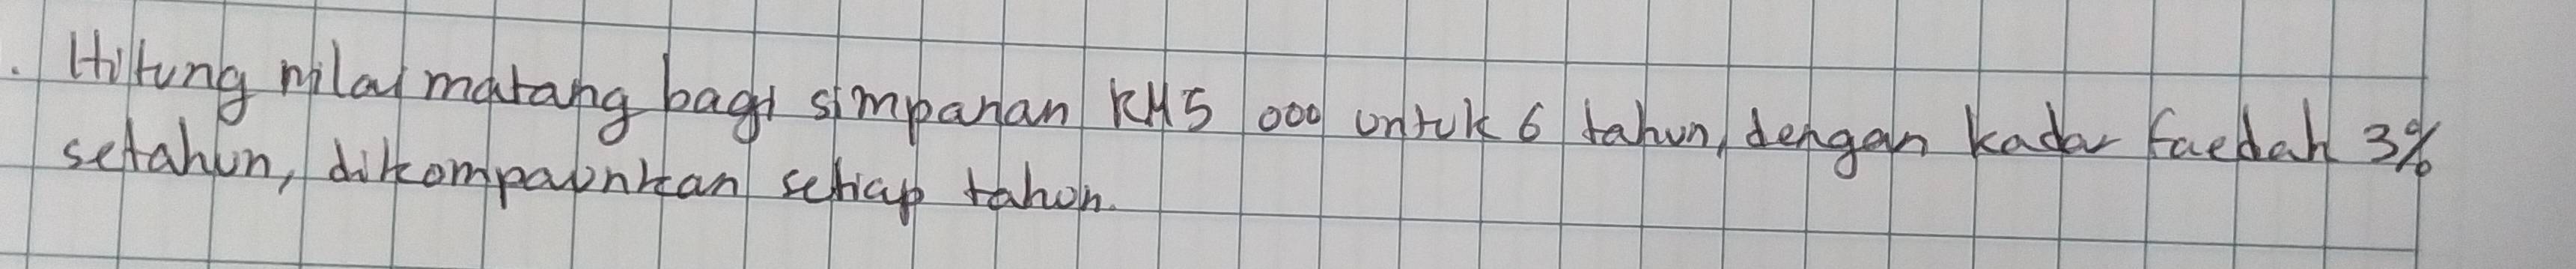 . Hitung nilai matang bagi simpanan RM5 000 untuk 6 tahun, dengan kadar faedah 3%
setahun, dikompaunkan setiap tahun.